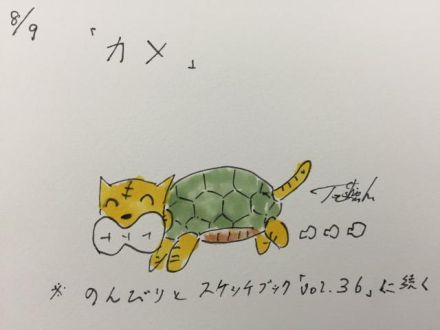 8/9
「カメ」
※ のんびりと スケッチブック「vol.36」に続く